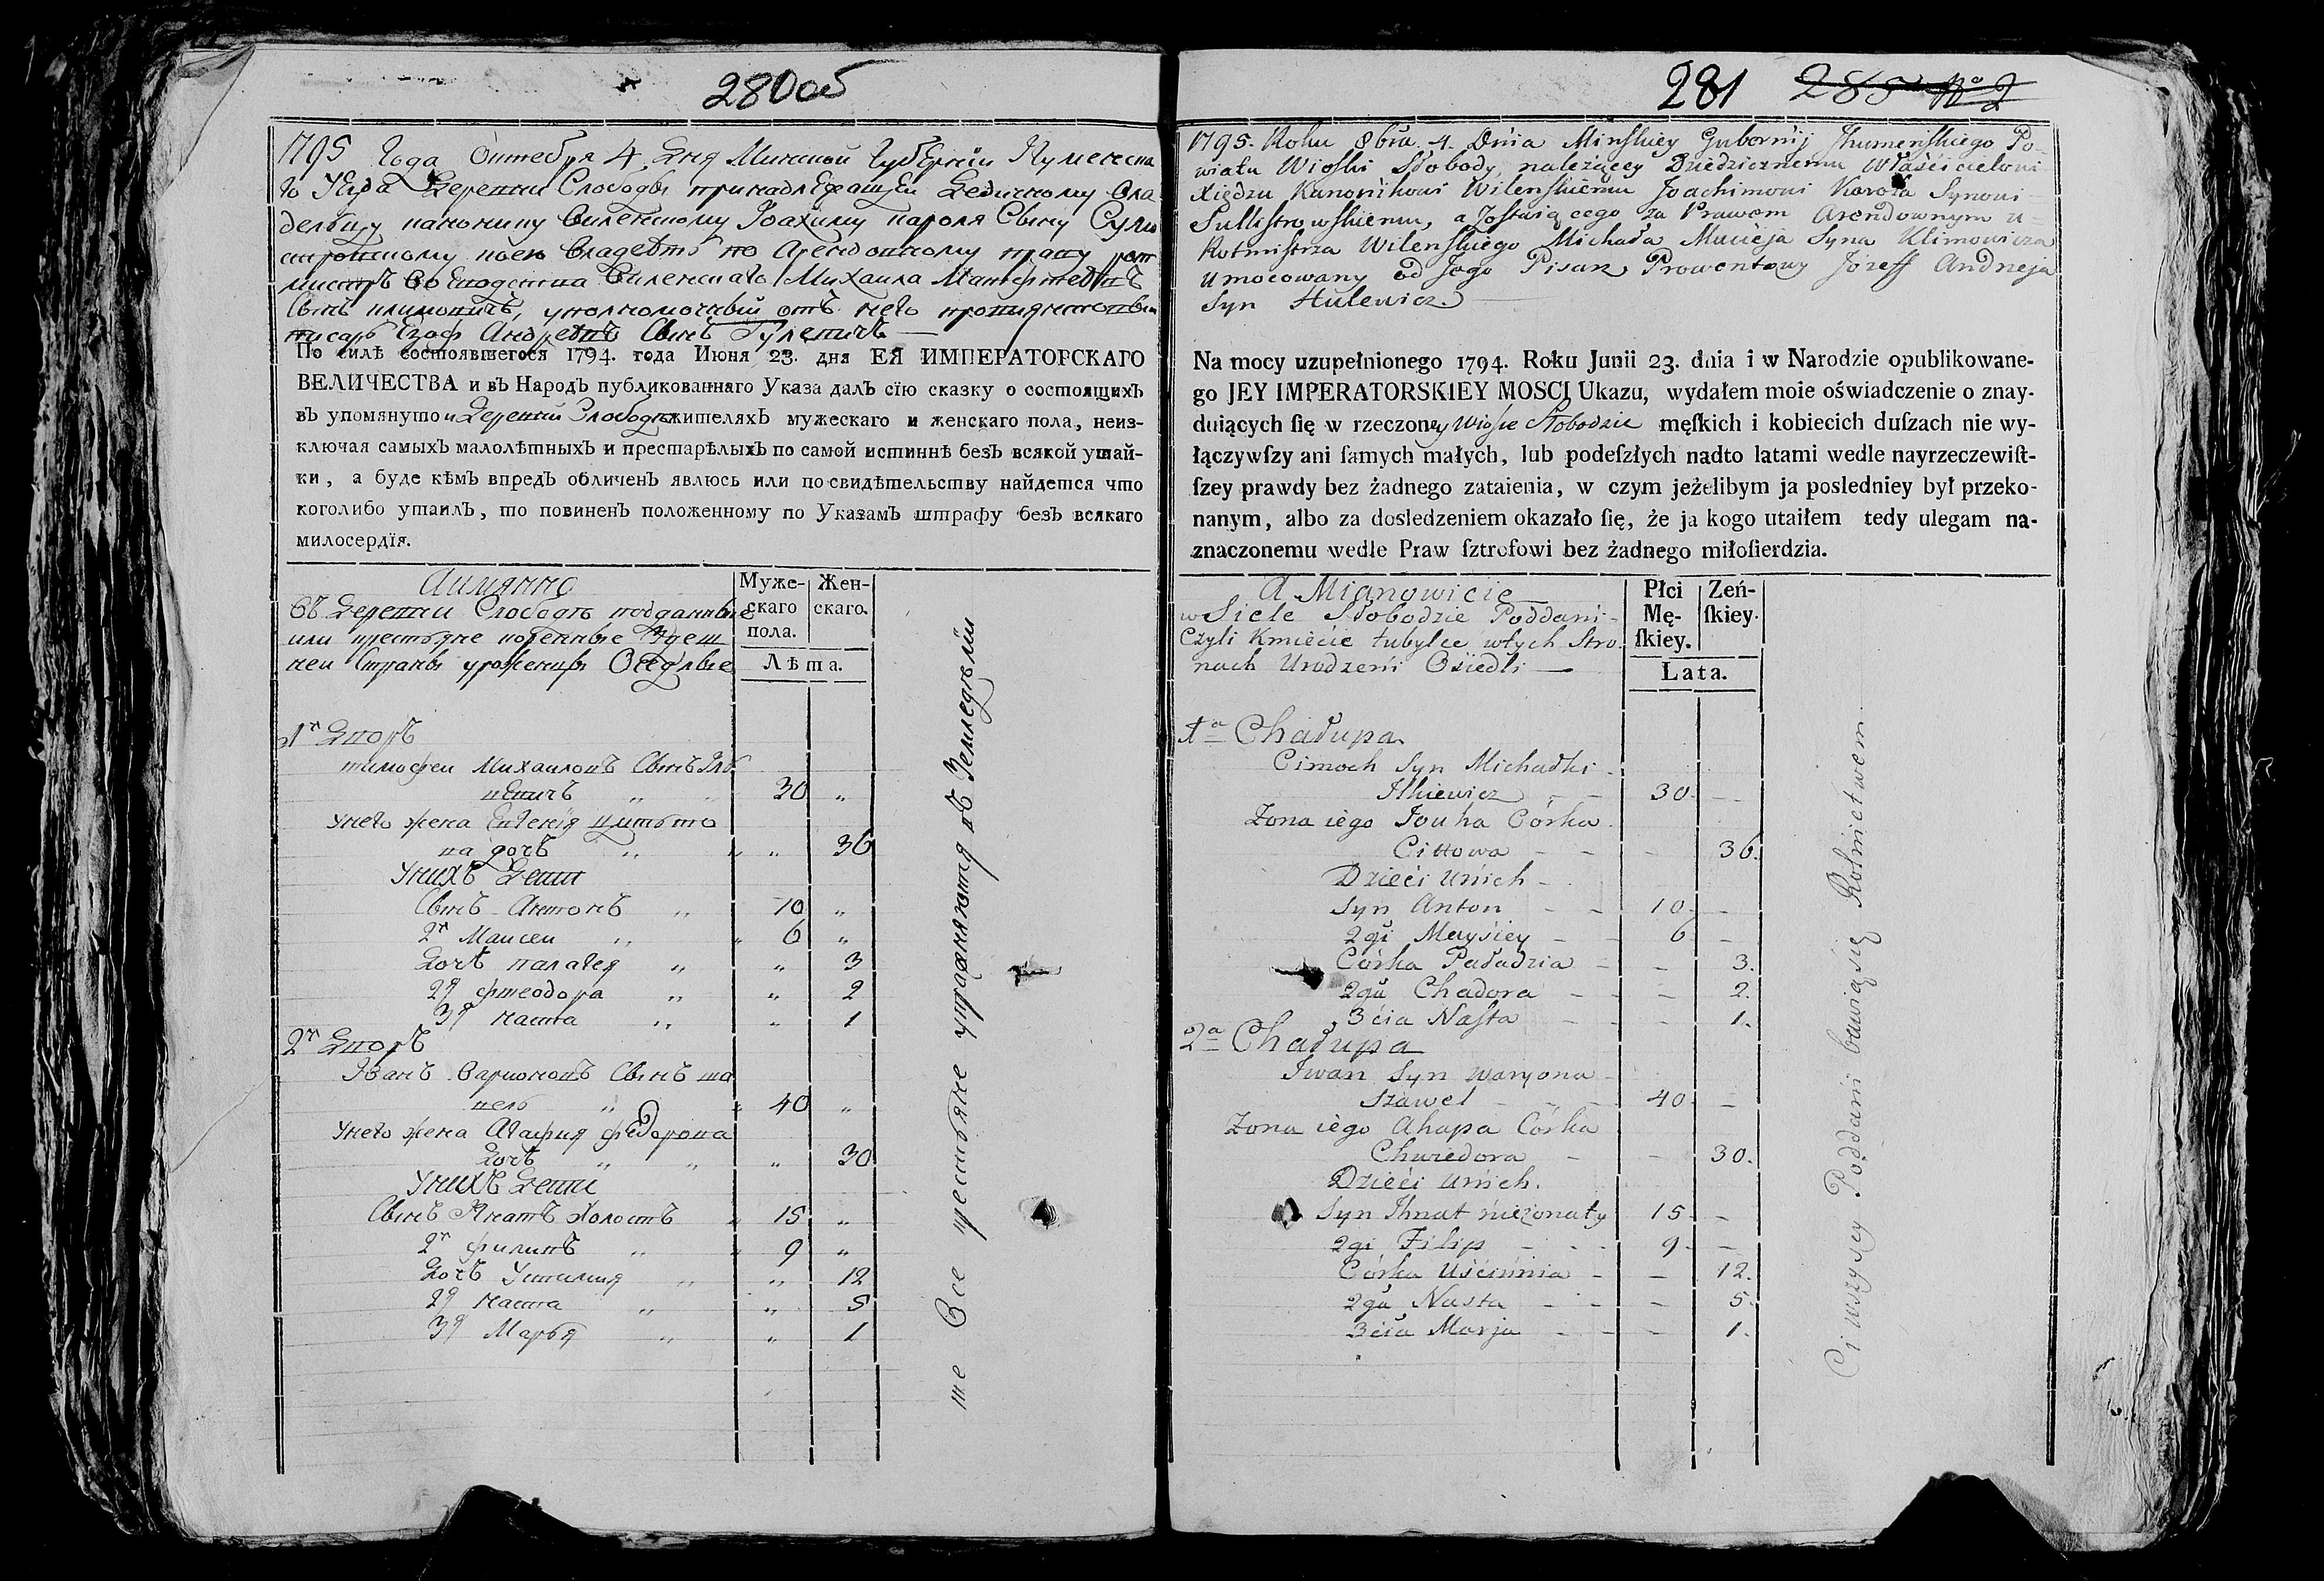 280об
1795 Года Октебря 4 Дня Минской Губернии Игуменска
го Уезда Деревни Слободы принадлежащей Дедичному Вла
дельцу канонику Виленскому Иоахиму Кароля Сыну Сули
стровскому коею владеетъ по Арендовному праву рот
мистръ Воеводства Виленскаго Михаила Матфеевъ
Сынъ Климовичъ, уполномочный отъ него провиднтовый
писарь Езофъ Андреевъ Сынъ Гулевичъ
По силѣ состоявшегося 1794. года Июня 23. дня ЕЯ ИМПЕРАТОРСКАГО
ВЕЛИЧЕСТВА и въ Народъ публикованнаго Указа далъ сїю сказку о состоящихъ
въ упомянутои Деревни Слободѣ жителяхъ мужескаго и женскаго пола, неиз-
ключая самыхъ малолѣтныхъ и престарѣлыхъ по самой истиннѣ безъ всякой утай-
ки, а буде кѣмъ впредъ обличенъ явлюсь или по свидѣтельству найдется что
коголибо утаилъ, то повиненъ положенному по Указамъ штрафу безъ всякаго
милосердїя.
Аимянно
въ Деревни Слободѣ подданные
или крестьяне коренные Здеш
ней Страны уроженцы Оседлые
Муже-
скаго
пола.
Жен-
скаго.
Лѣта.
1й Дворъ
тимофеи Михаиловъ Сынъ Иль
кевичъ „ 30 „
Унего жена Евгения цитова
дочь „ „ „ 36
Унихъ Дети
Сынъ Антонъ „ 10 „
2й Маисеи „ „ 6 „
Дочь палагея „ „ 3
2я фтеодора „ „ 2
3я наста „ „ 1
2й Дворъ
Иванъ Варионовъ Сынъ ша
вель „ „ 40 „
Унего жена Агафия федорова
дочь „ „ „ 30
Унихъ Дети
Сынъ Игнатъ Холостъ „ 15 „
2й филипъ „ „ 9 „
Дочь Устиния „ „ 12
2я наста „ „ 5
3я Марья „ „ 1
те Все крестьяне упражняются въ Земледелии
281 285 No 2
1795. Roku 8bra 4. Dnia Minskiey Gubernij Jhumenskiego Po-
wiatu Wioski Słobody, należącey Dziedzicznemu Właścicielowi
Xiędzu Kanonikowi Wilenskiemu Joachimowi Karola Synowi
Sulistrowskiemu, a zostaiącego za Prawem Arendownym u
Rotmistrza Wilenskiego Michała Macieja Syna Klimowicza
Umocowany od Jego Pisarz Prowentowy Jozeff Andrzeja
Syn Hulewicz.
Na mocy uzupełnionego 1794. Roku Junii 23. dnia i w Narodzie opublikowane-
go JEY IMPERATORSKIEY MOSCI Ukazu, wydałem moie oświadczenie o znay-
duiących ſię w rzeczoney Wiosce Słobodzie męſkich i kobiecich duſzach nie wy-
łączywſzy ani ſamych małych, lub podeſzłych nadto latami wedle nayrzeczewiſt-
ſzey prawdy bez żadnego zataienia, w czym jeżelibym ja posledniey był przeko-
nanym, albo za dosledzeniem okazało ſię, że ja kogo utaiłem tedy ulegam na-
znaczonemu wedle Praw ſztrofowi bez żadnego miłoſierdzia.
A Mianowicie
w Siele Słobodzie Poddani
Czyli Kmiecie tubylce wtych Stro-
nach Urodzeni Osiedli
Płci
Mę-
ſkiey.
Zeń-
ſkiey.
Lata.
1a Chałupa
Cimoch Syn Michałki
Ilkiewicz 30.
Zona iego Jouha Córka
Cittowa 36.
Dzieci Unich
Syn Anton 10.
2gi Maysiey 6.
Córka Paładzia 3.
2ga Chadora 2.
3cia Nasta 1.
2a Chałupa
Iwan Syn Waryona
Szawel 40.
Zona iego Ahapa Córka
Chwiedora 30.
Dzieci Unich.
Syn Ihnat nieżonaty 15
2gi Filip 9.
Córka Uścinnia 12.
2ga Nasta 5.
3cia Marja 1.
Ci wszyscy Poddani bawią się Rolnictwem